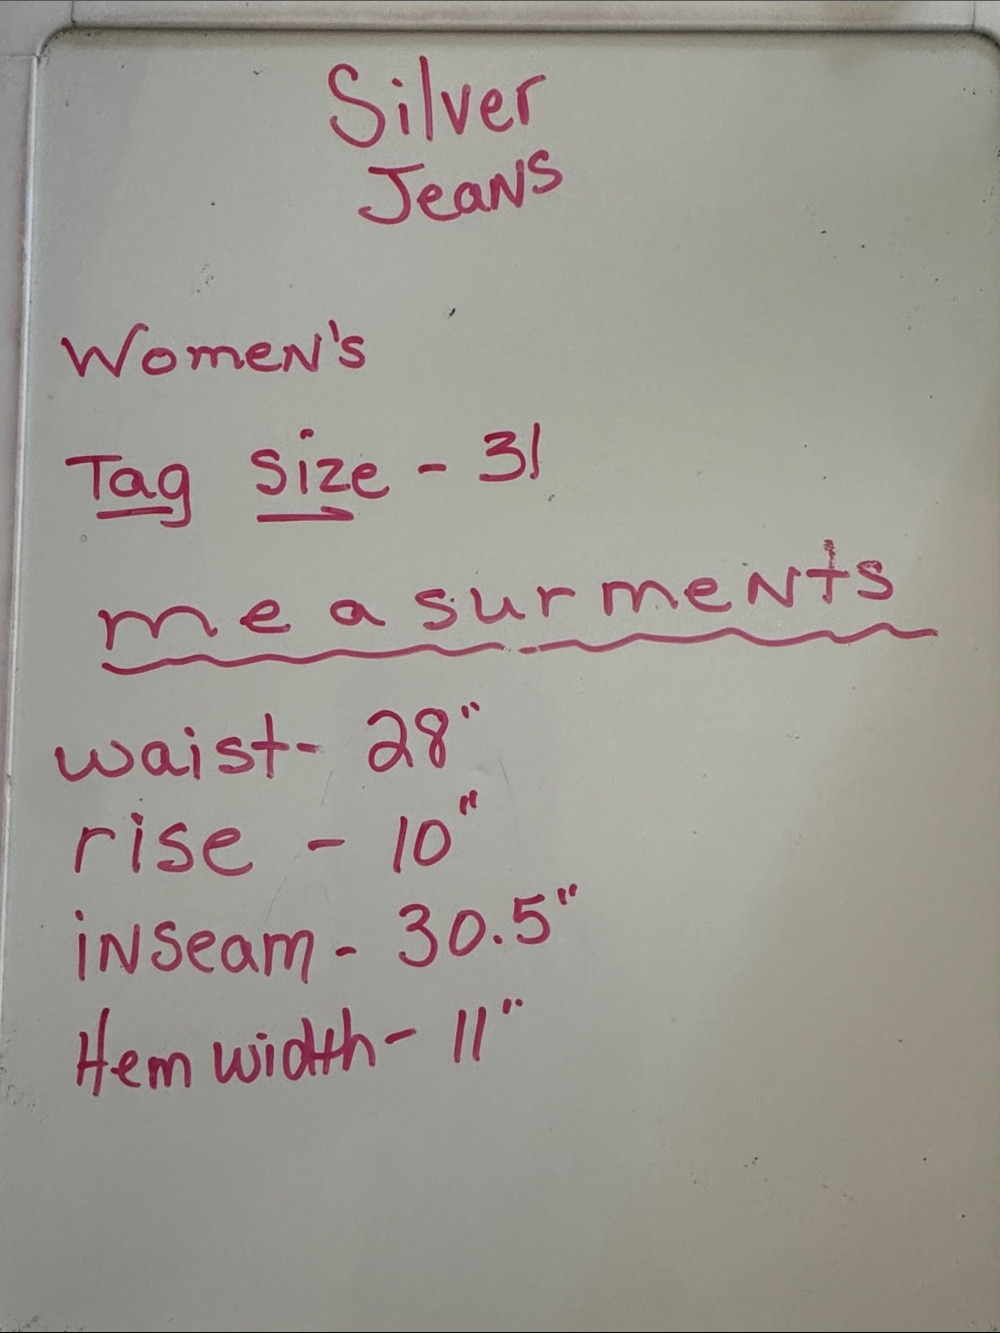 Silver
Jeans
Women's
Tag Size - 31
measurments
waist- 28"
rise - 10"
inseam - 30.5"
Hem width - 11"